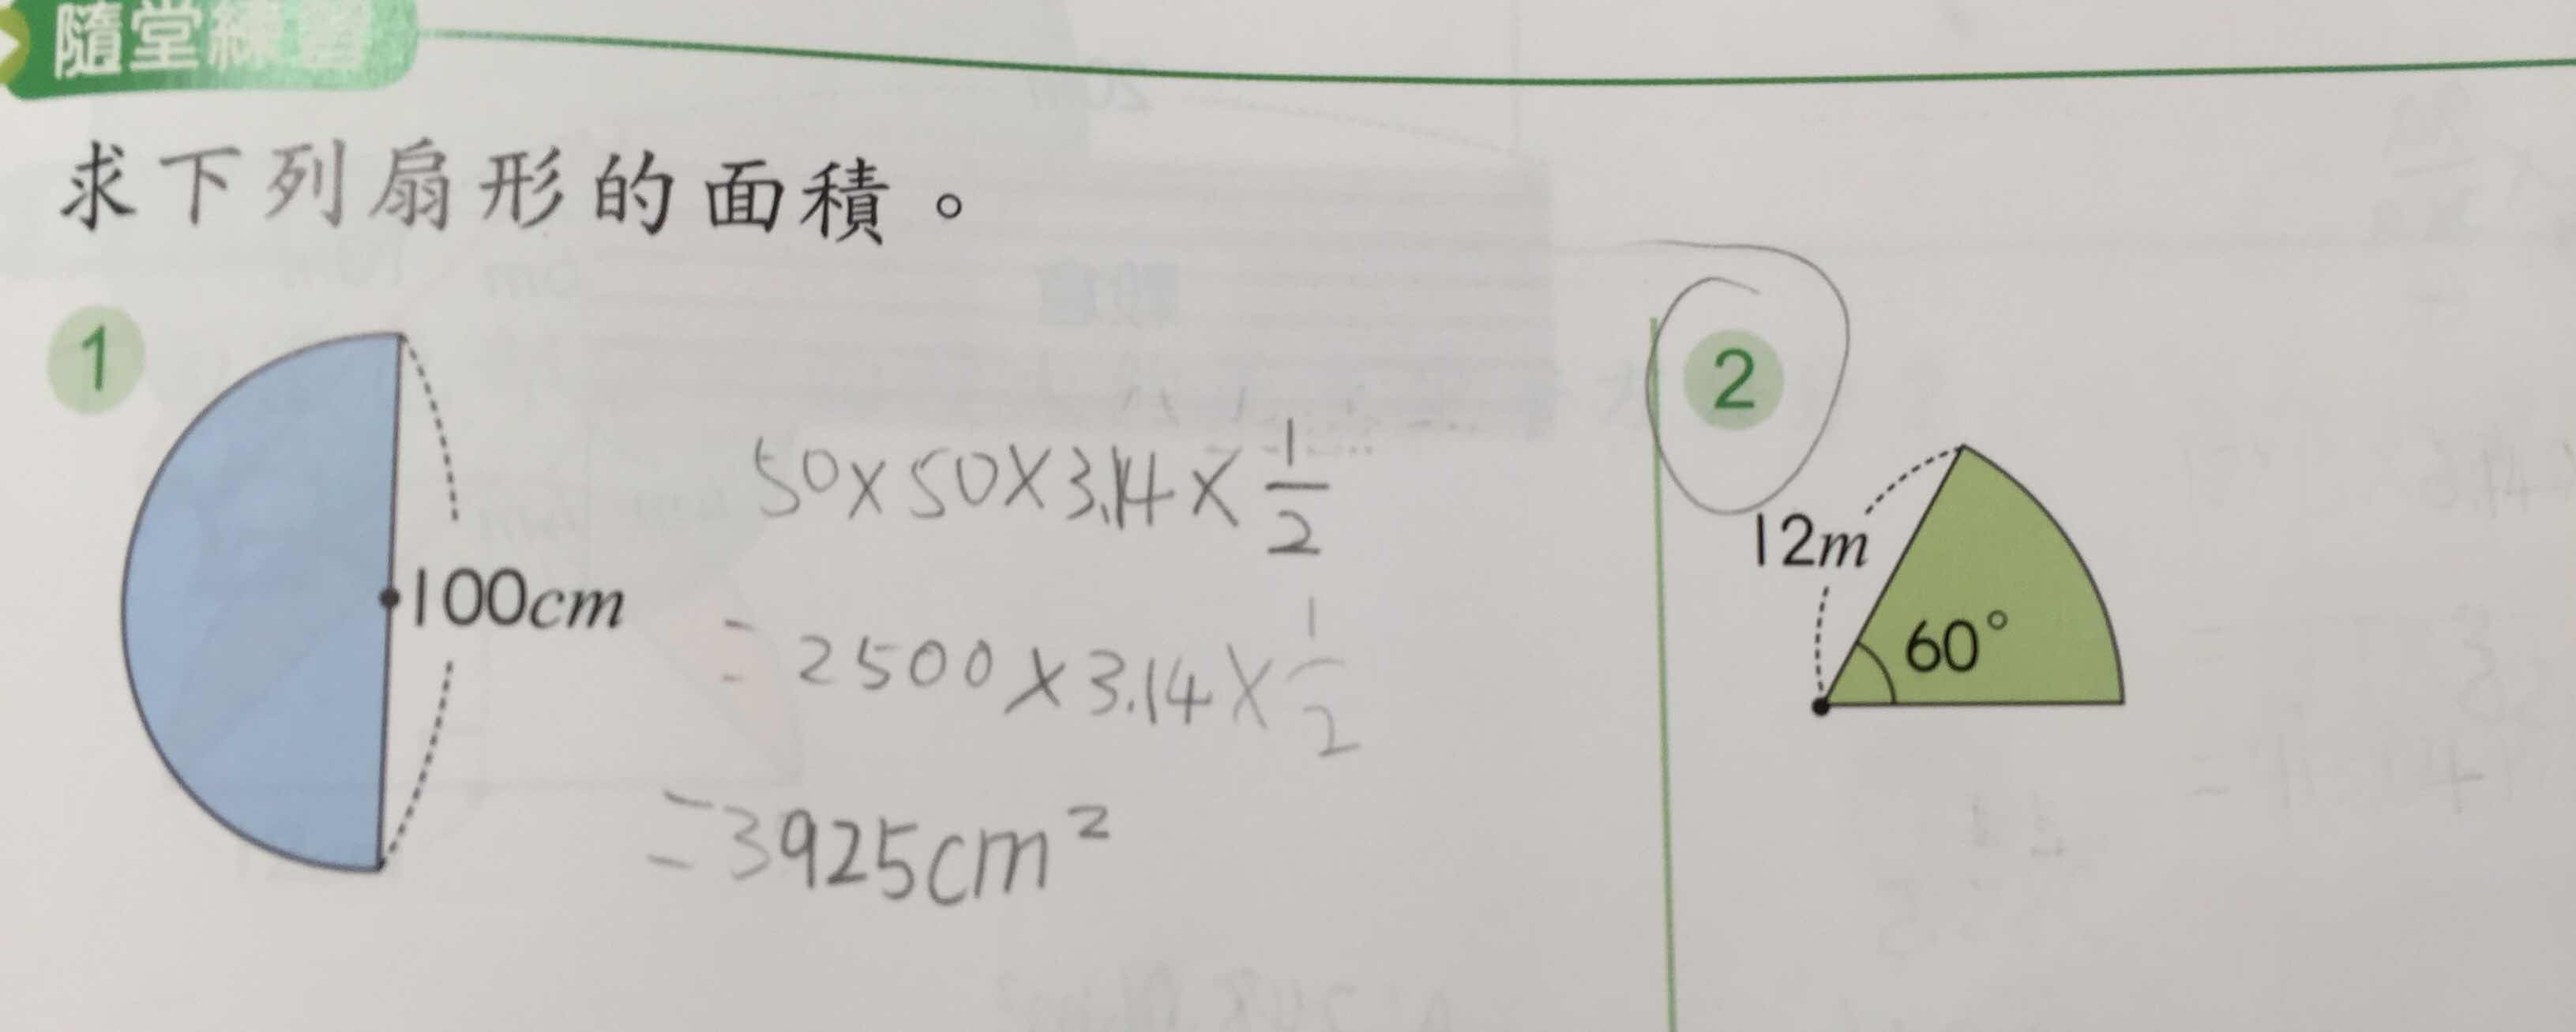 隨堂練習
求下列扇形的面積。
1
100cm
50×50×3.14×1/2
=2500×3.14×1/2
=3925cm²
2
12m
60°